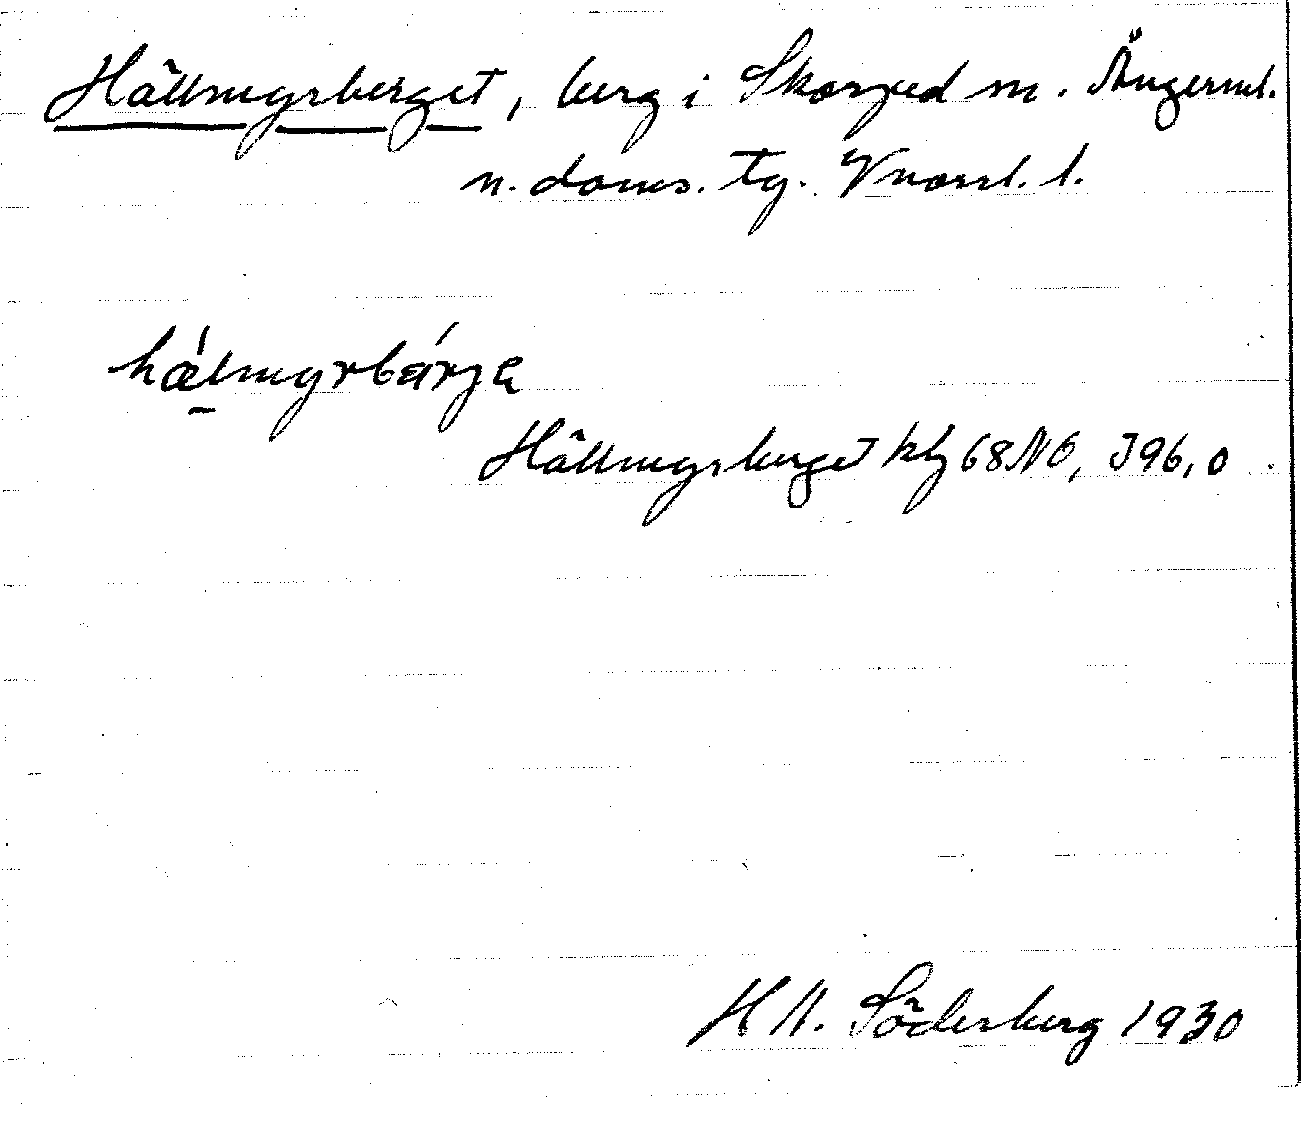 Hällmyrberget, berg i Skorped sn. Ångerml.
n. doms. tg. Vnorrl. l.
hǽlmyrbǽrjə
Hällmyrberget kbl 68NO, J96,0
H N. Söderberg 1930